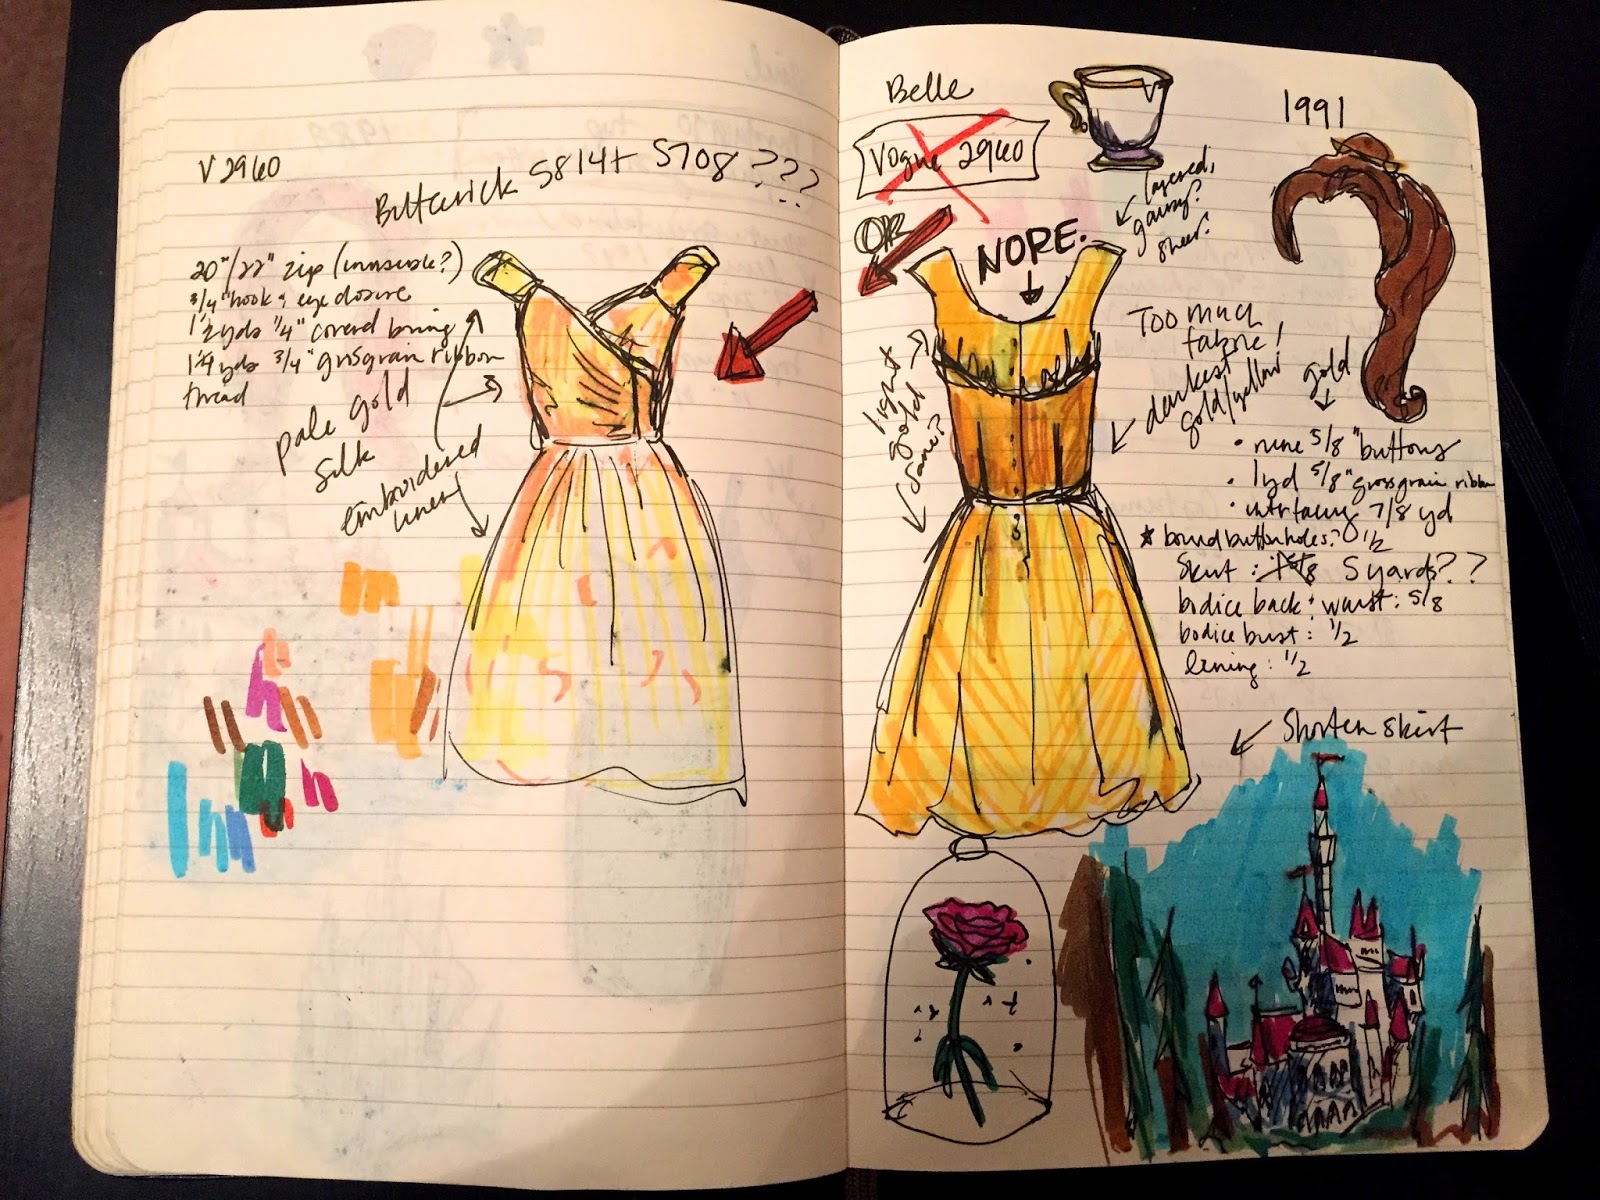 V 2960
Butterick 5814 + 5708 ???
20"/22" zip (invisible?)
3/4" hook & eye closure
1 1/2 yds 1/4" covered boning
1 1/4 yds 3/4" grosgrain ribbon
thread
pale gold
silk
embroidered
linen
Belle
Vogue 2960
OR
NOPE.
layered,
gauzy?
sheer?
1991
light
gold
same?
Too much
fabric!
darkest
gold/yellow
gold
• nine 5/8" buttons
• 1yd 5/8" grosgrain ribbon
• interfacing 7/8 yd
* bound buttonholes? 0 1/2
Skirt : 5 yards??
bodice back + waist: 5/8
bodice bust: 1/2
lining: 1/2
Shorten skirt